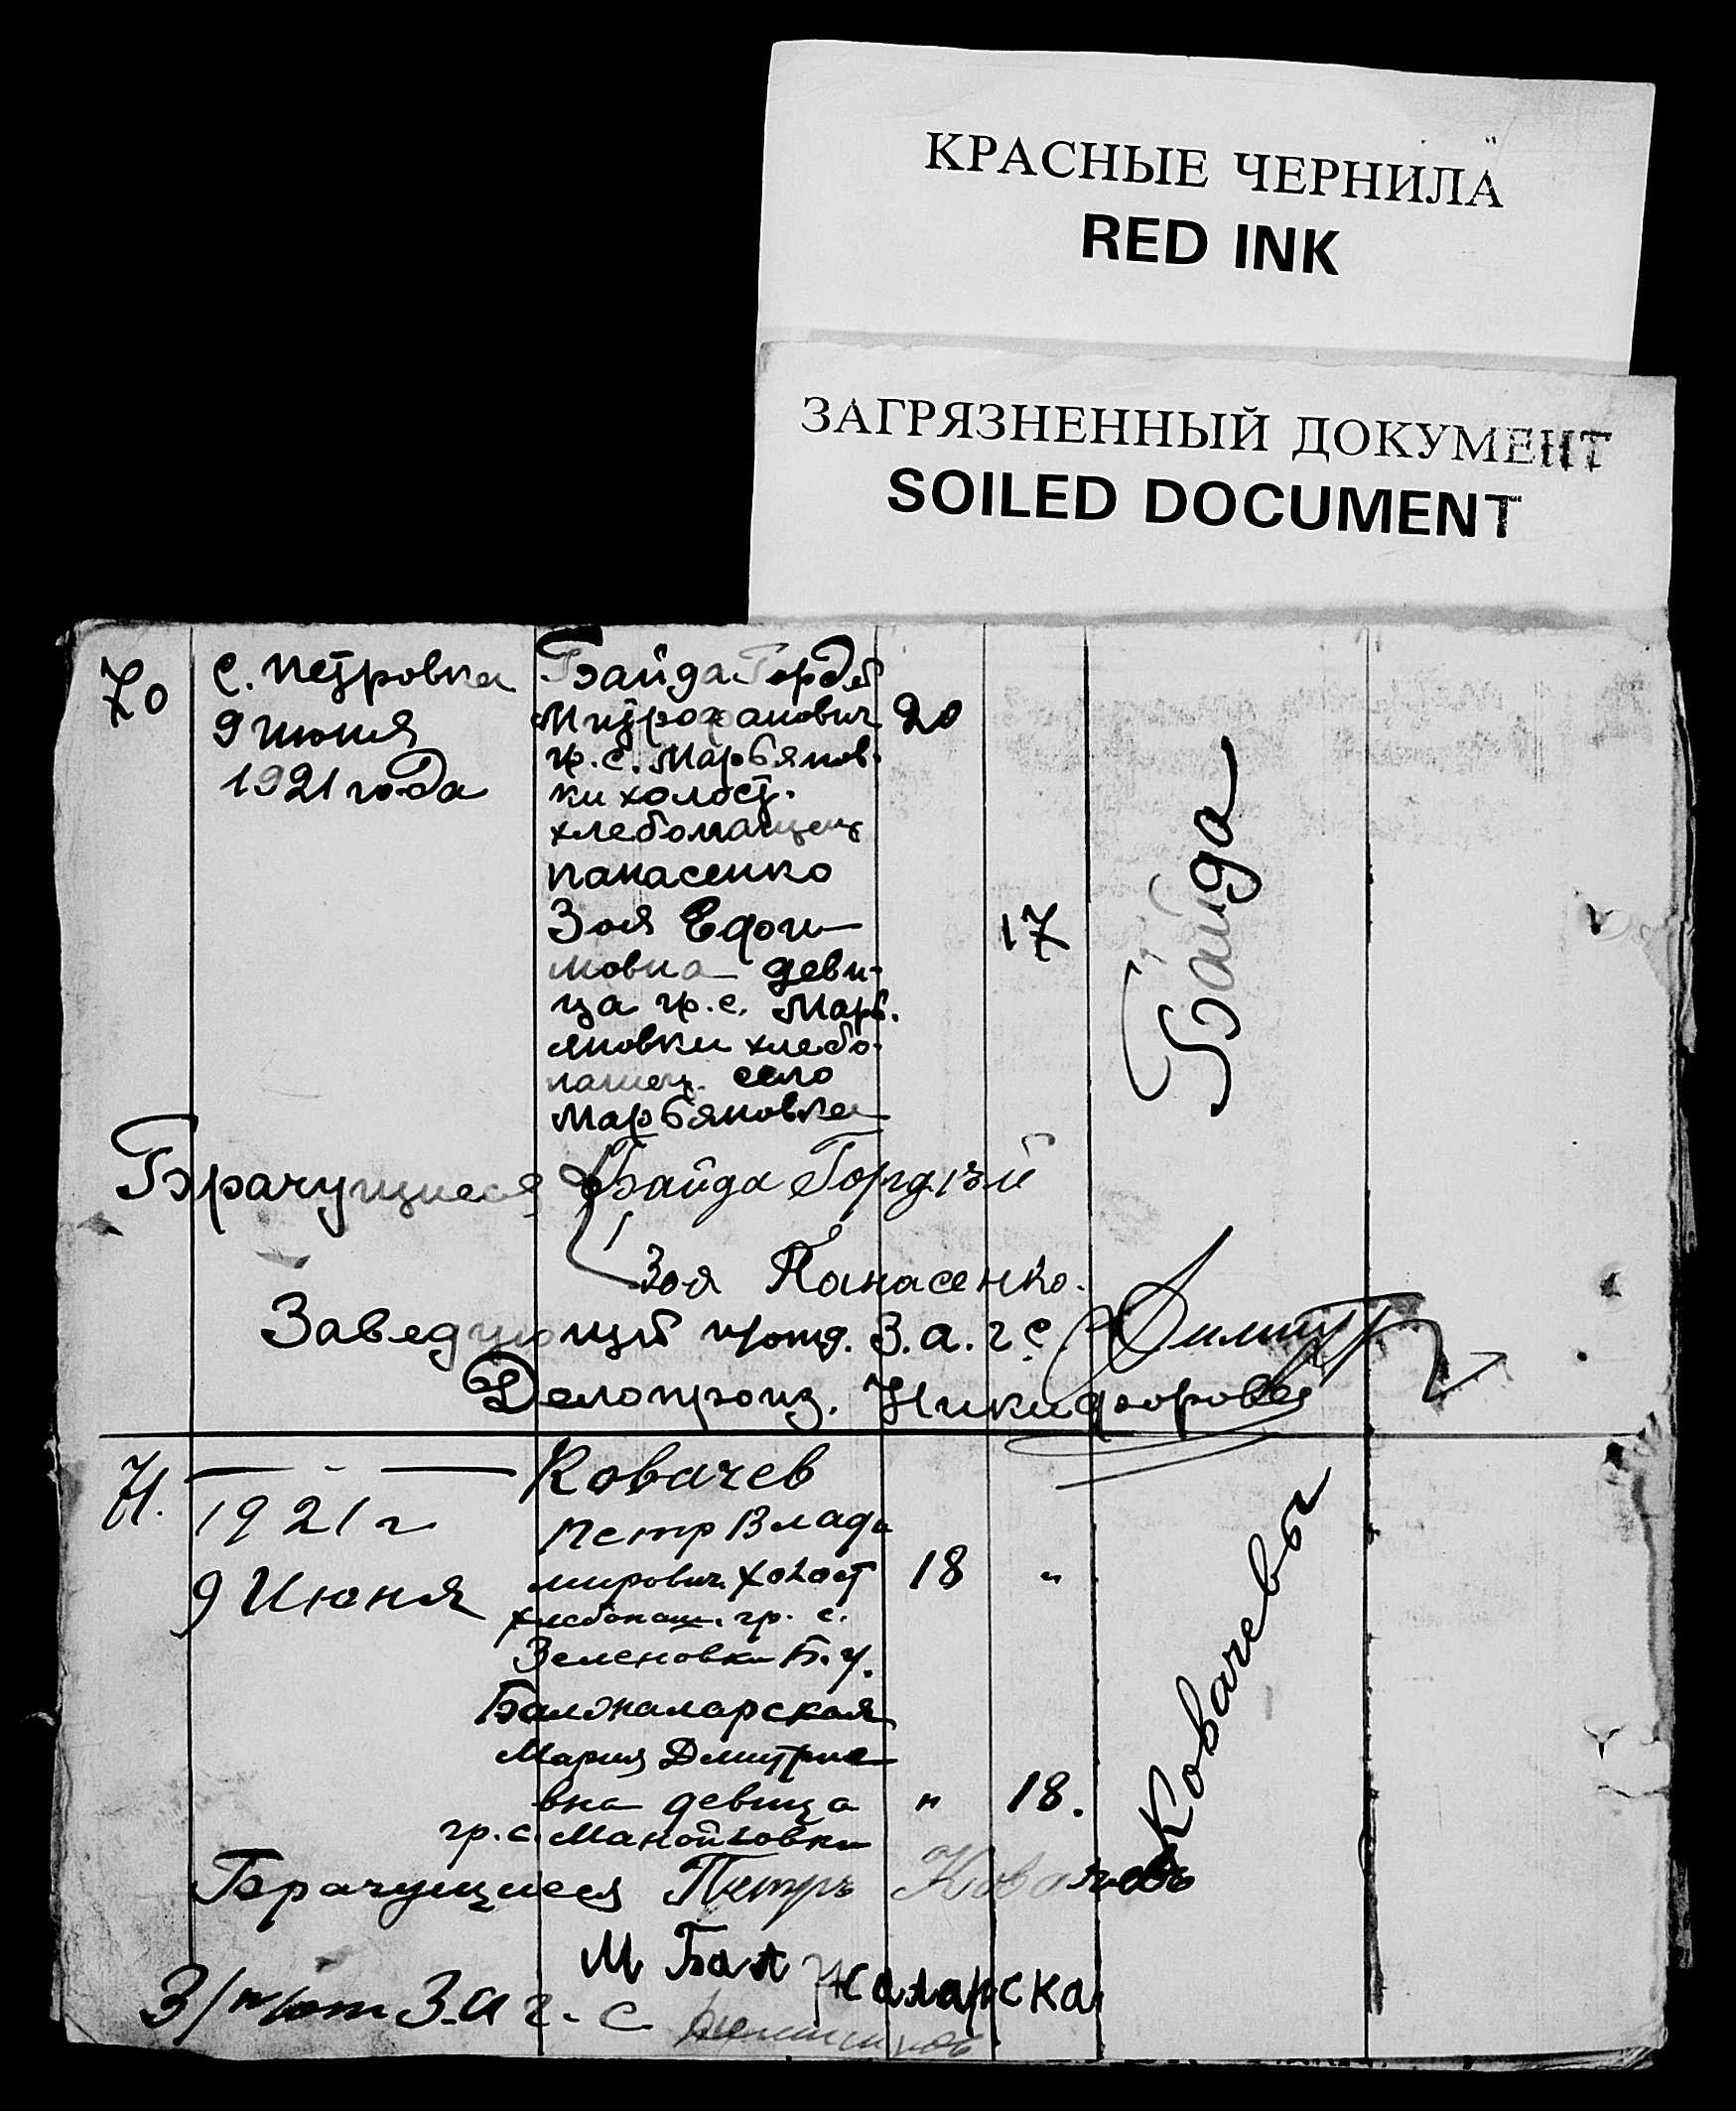 КРАСНЫЕ ЧЕРНИЛА
RED INK
ЗАГРЯЗНЕННЫЙ ДОКУМЕНТ
SOILED DOCUMENT
70
с. Петровка
9 июня
1921 года
Байда Гордей
Митрофанович
гр. с. Марьянов-
ки холост.
хлебопашец
20
Панасенко
Зоя Ефи-
мовна деви-
ца гр. с. Марь-
яновки хлебо-
пашец. село
Марьяновка
17
Байда
Брачущиеся Байда Гордій
Зоя Панасенко.
Заведующий п/отд. З.а.г.с.
Делопроиз. Никифорова
71.
— " —
1921 г
9 Июня
Ковачев
Петр Влади
мирович холост
хлебопаш. гр. с.
Зеленовки Б. у.
18 "
Балжаларская
Мария Дмитрие
вна девица
гр. с. Манойловки
" 18.
Ковачевы
Брачущиеся Петръ Ковачевъ
М Балжаларска
З/п/отд З.а г. с.